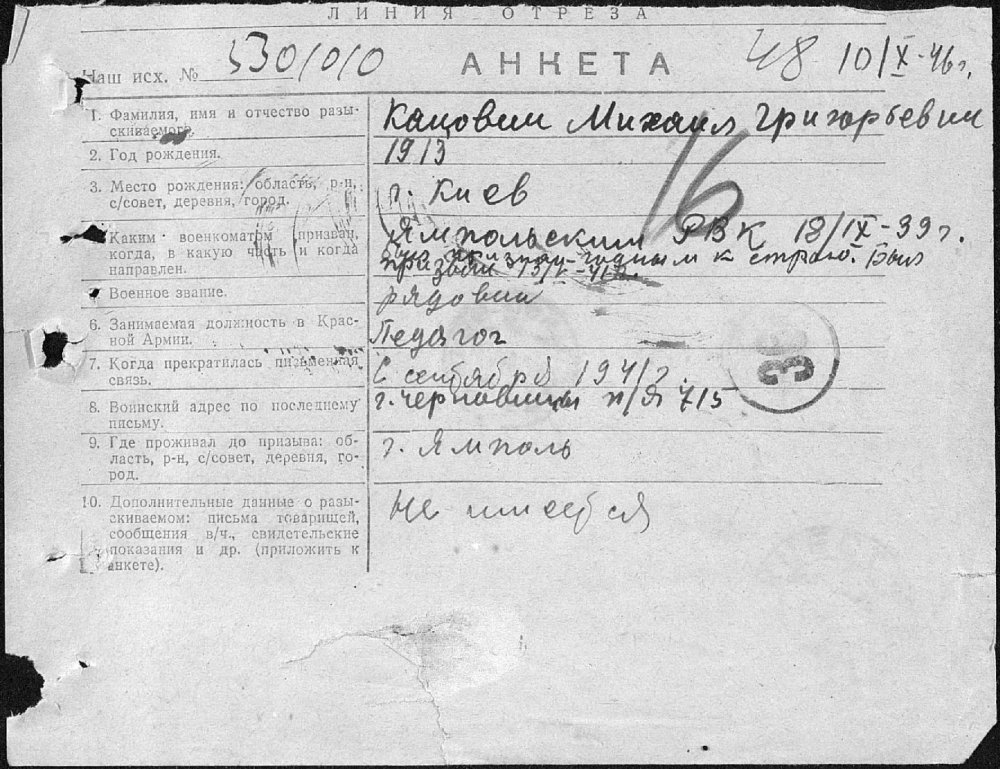 ЛИНИЯ ОТРЕЗА
Наш исх. № 530/0/0 АНКЕТА 48 10/X-46г.
1. Фамилия, имя и отчество разы-
скиваемого.
Кацович Михаил Григорьевич
2. Год рождения.
1913
16
3. Место рождения: область, р-н,
с/совет, деревня, город.
г. Киев
Каким военкоматом призван,
когда, в какую часть и когда
направлен.
Ямпольским РВК 18/IX-39г.
признан годным к строю. Был
призван 15/V-41г.
Военное звание.
рядовий
6. Занимаемая должность в Крас-
ной Армии.
Педагог
7. Когда прекратилась письменная
связь.
С сентября 1941г.
36
8. Воинский адрес по последнему
письму.
г. Черновицы п/я 715
9. Где проживал до призыва: об-
ласть, р-н, с/совет, деревня, го-
род.
г. Ямполь
10. Дополнительные данные о разы-
скиваемом: письма товарищей,
сообщения в/ч., свидетельские
показания и др. (приложить к
анкете).
Не имеется